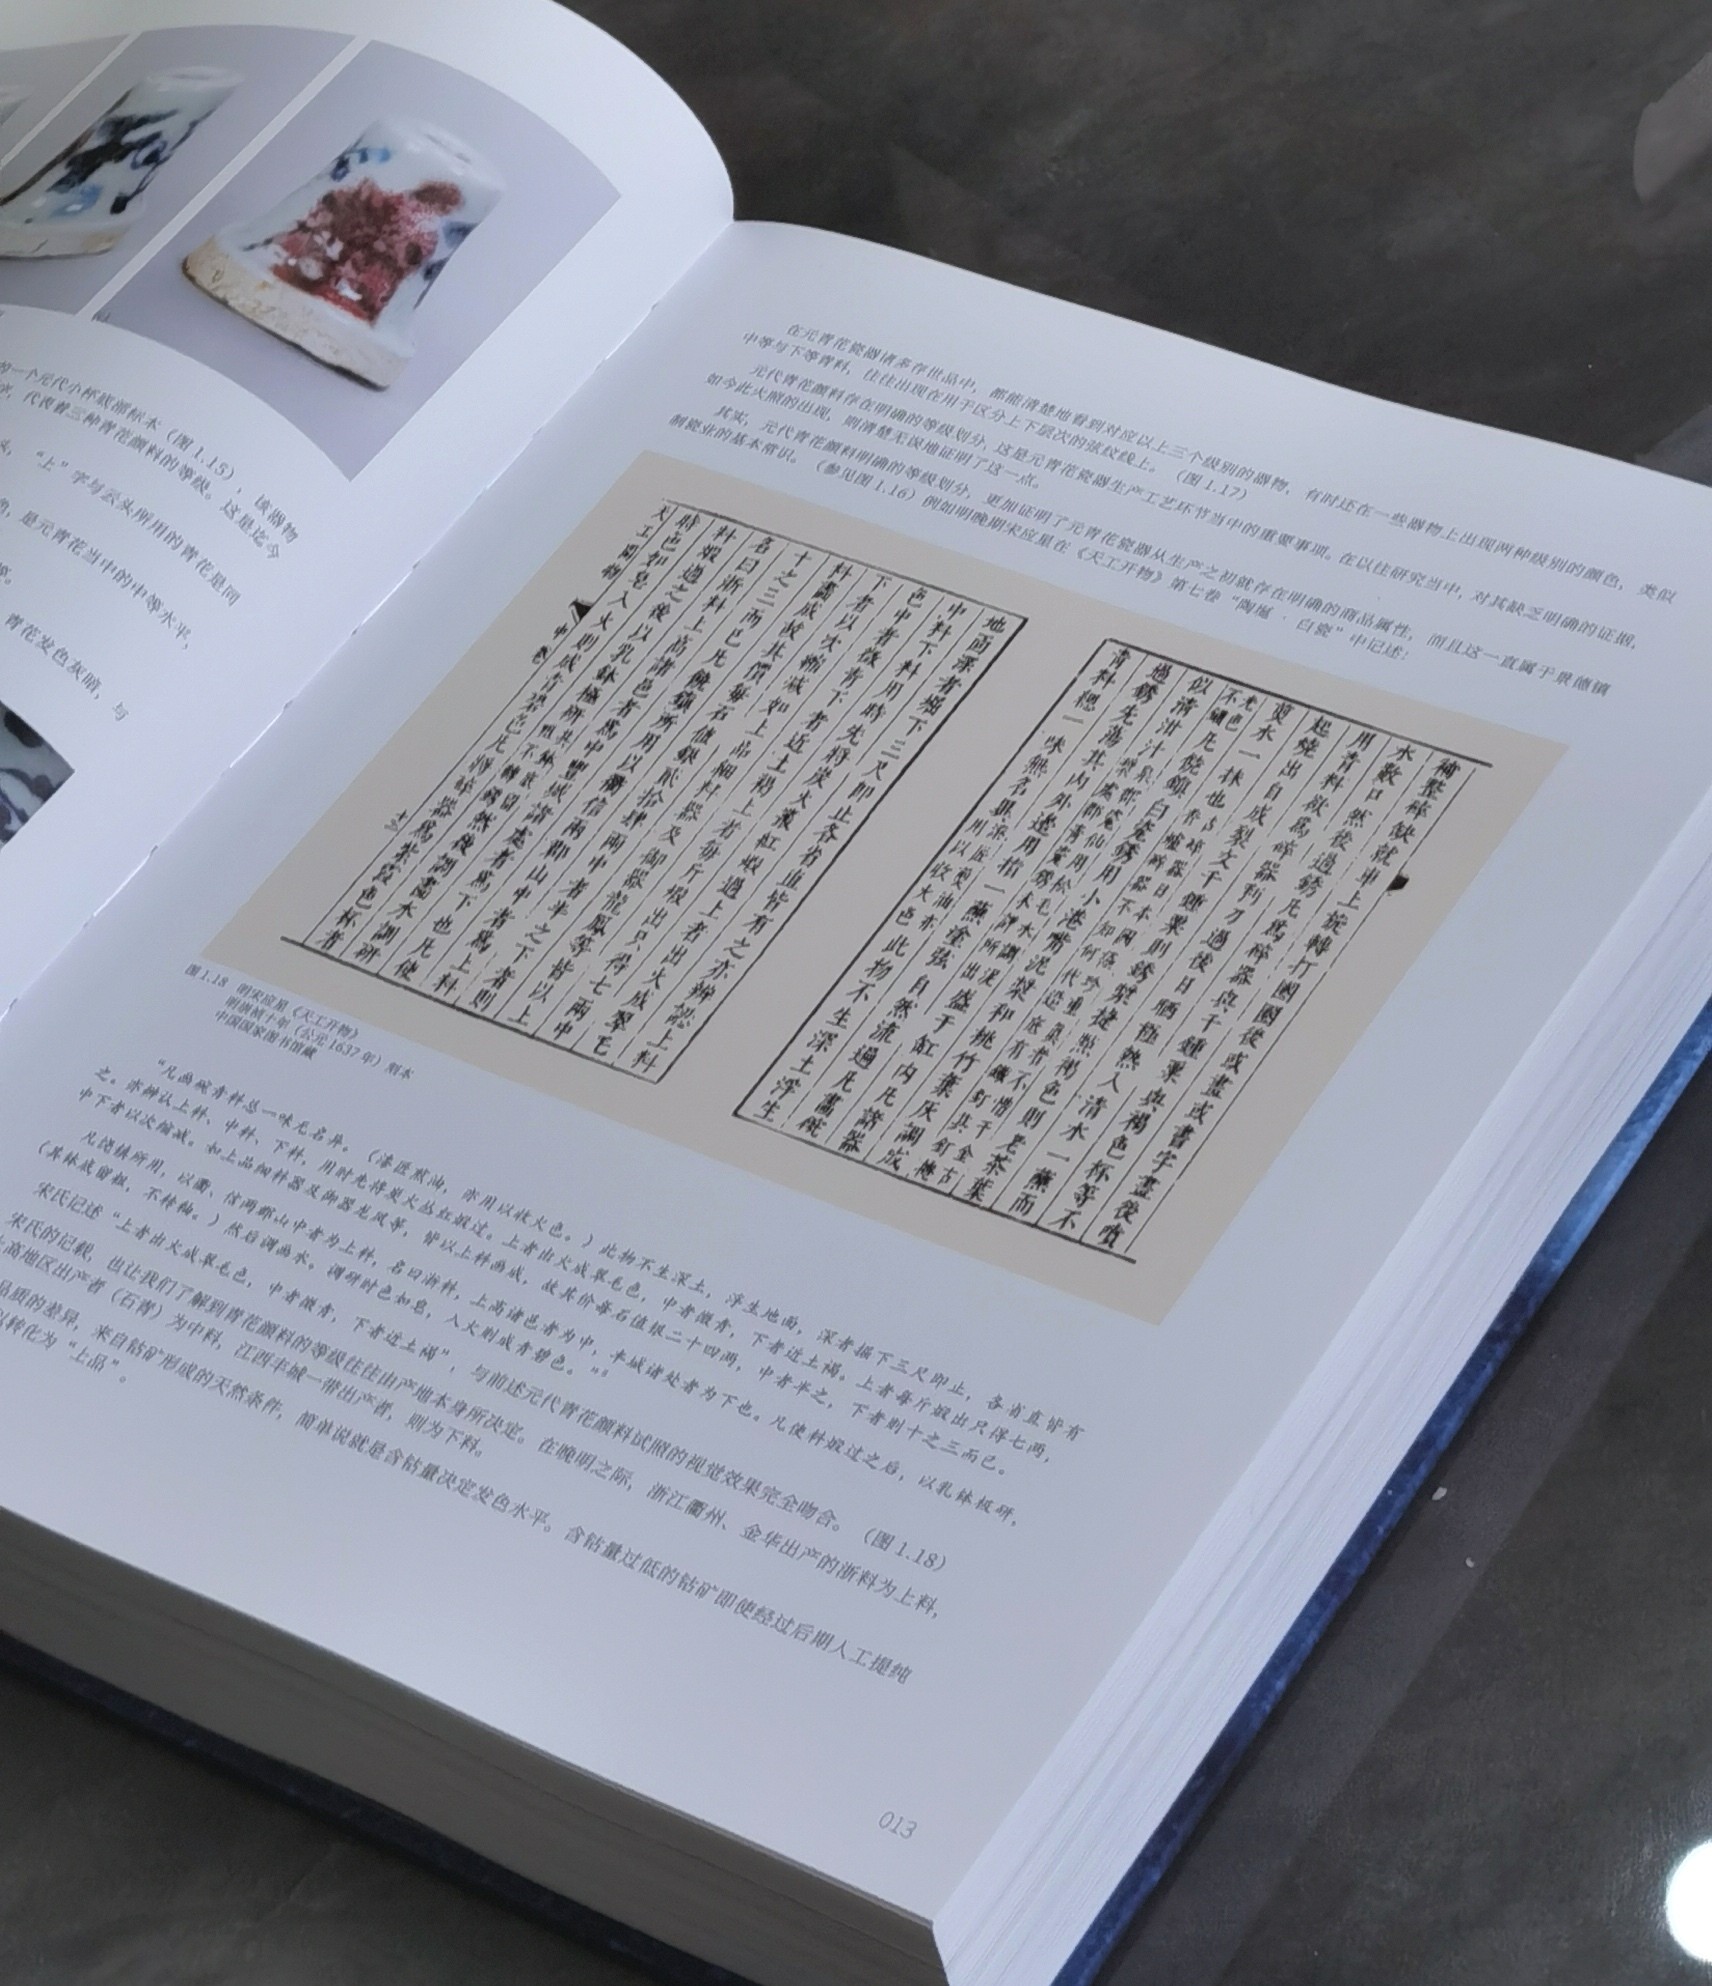 的一个元代小杯底部标本（图1.15），该器物
代表着三种青花颜料的等级。这是迄今
“上”字与云头所用的青花是同
色，是元青花当中的中等水平，
等。
青花发色灰暗，与
在元青花瓷器诸多存世品中，都能清楚地看到对应以上三个级别的器物，有时还在一些器物上出现两种级别的颜色，类似
中等与下等青料，往往出现在用于区分上下层次的弦纹线上。（图1.17）
元代青花颜料存在明确的等级划分，这是元青花瓷器生产工艺环节当中的重要事项。在以往研究当中，对其缺乏明确的证据，
如今此火照的出现，则清楚无误地证明了这一点。
其实，元代青花颜料明确的等级划分，更加证明了元青花瓷器从生产之初就存在明确的商品属性，而且这一直属于景德镇
制瓷业的基本常识。（参见图1.16）例如明晚期宋应星在《天工开物》第七卷“陶埏·白瓷”中记述：
補整碎缺就車上旋轉打圈圈後或畫或書字畫後噴
水數口然後過銹凡爲碎器與千鍾粟與褐色杯等不
用青料欲爲碎器利刀過後日晒極熱入清水一蘸而
起燒出自成裂文千鍾粟則銹漿捷點褐色則老茶葉
煎水一抹也古碎器日本國極珍重真者不惜千金古
香爐碎器不知何代造底有鐵釘其釘掩
光色不鏽凡饒鎮白瓷銹用小港嘴泥漿和桃竹葉灰調成
似清泔汁泉郡瓷仙用松毛水調泥漿
處郡青瓷銹未詳所出盛于缸內凡諸器
過銹先蕩其內外邊用指一蘸塗弦自然流遍凡畫碗
青料總一味無名異漆匠煎油亦用以收火色此物不生深土浮生
地面深者堀下三尺即止各省直皆有之亦辨認上料
中料下料用時先將炭火叢紅煅過上者出火成翠毛
色中者微青下者近土褐上者每斤煅出只得七兩中
下者以次縮減如上品細料器及御器龍鳳等皆以上
料畫成故其價每石值銀貳拾肆兩中者半之下者則
十之三而已凡饒鎮所用以衢信兩郡山中者爲上料
名曰浙料上高諸邑者爲中豐城諸處者爲下也凡使
料煅過之後以乳鉢極研其鉢底留粗不轉銹然後調畫水調研
時色如皂入火則成青碧色凡將碎器爲紫霞色杯者
天工開物 中卷 十三
图1.18 明宋应星《天工开物》
明崇祯十年（公元1637年）刻本
中国国家图书馆藏
“凡画碗青料总一味无名异。（漆匠煎油，亦用以收火色。）此物不生深土，浮生地面，深者掘下三尺即止，各省直皆有
之。亦辨认上料、中料、下料，用时先将炭火丛红煅过。上者出火成翠毛色，中者微青，下者近土褐。上者每斤煅出只得七两，
中下者以次缩减。如上品细料器及御器龙凤等，皆以上料画成，故其价每石值银二十四两，中者半之，下者则十之三而已。
凡饶镇所用，以衢、信两郡山中者为上料，名曰浙料，上高诸邑者为中，丰城诸处者为下也。凡使料煅过之后，以乳钵极研，
（其钵底留粗，不转釉。）然后调画水。调研时色如皂，入火则成青碧色。”。
宋氏记述“上者出火成翠毛色，中者微青，下者近土褐”，与前述元代青花颜料试照的视觉效果完全吻合。（图1.18）
宋氏的记载，也让我们了解到青花颜料的等级往往由产地本身所决定。在晚明之际，浙江衢州、金华出产的浙料为上料，
上高地区出产者（石青）为中料，江西丰城一带出产者，则为下料。
品质的差异，来自钴矿形成的天然条件，简单说就是含钴量决定发色水平。含钴量过低的钴矿即使经过后期人工提纯
以转化为“上品”。
013